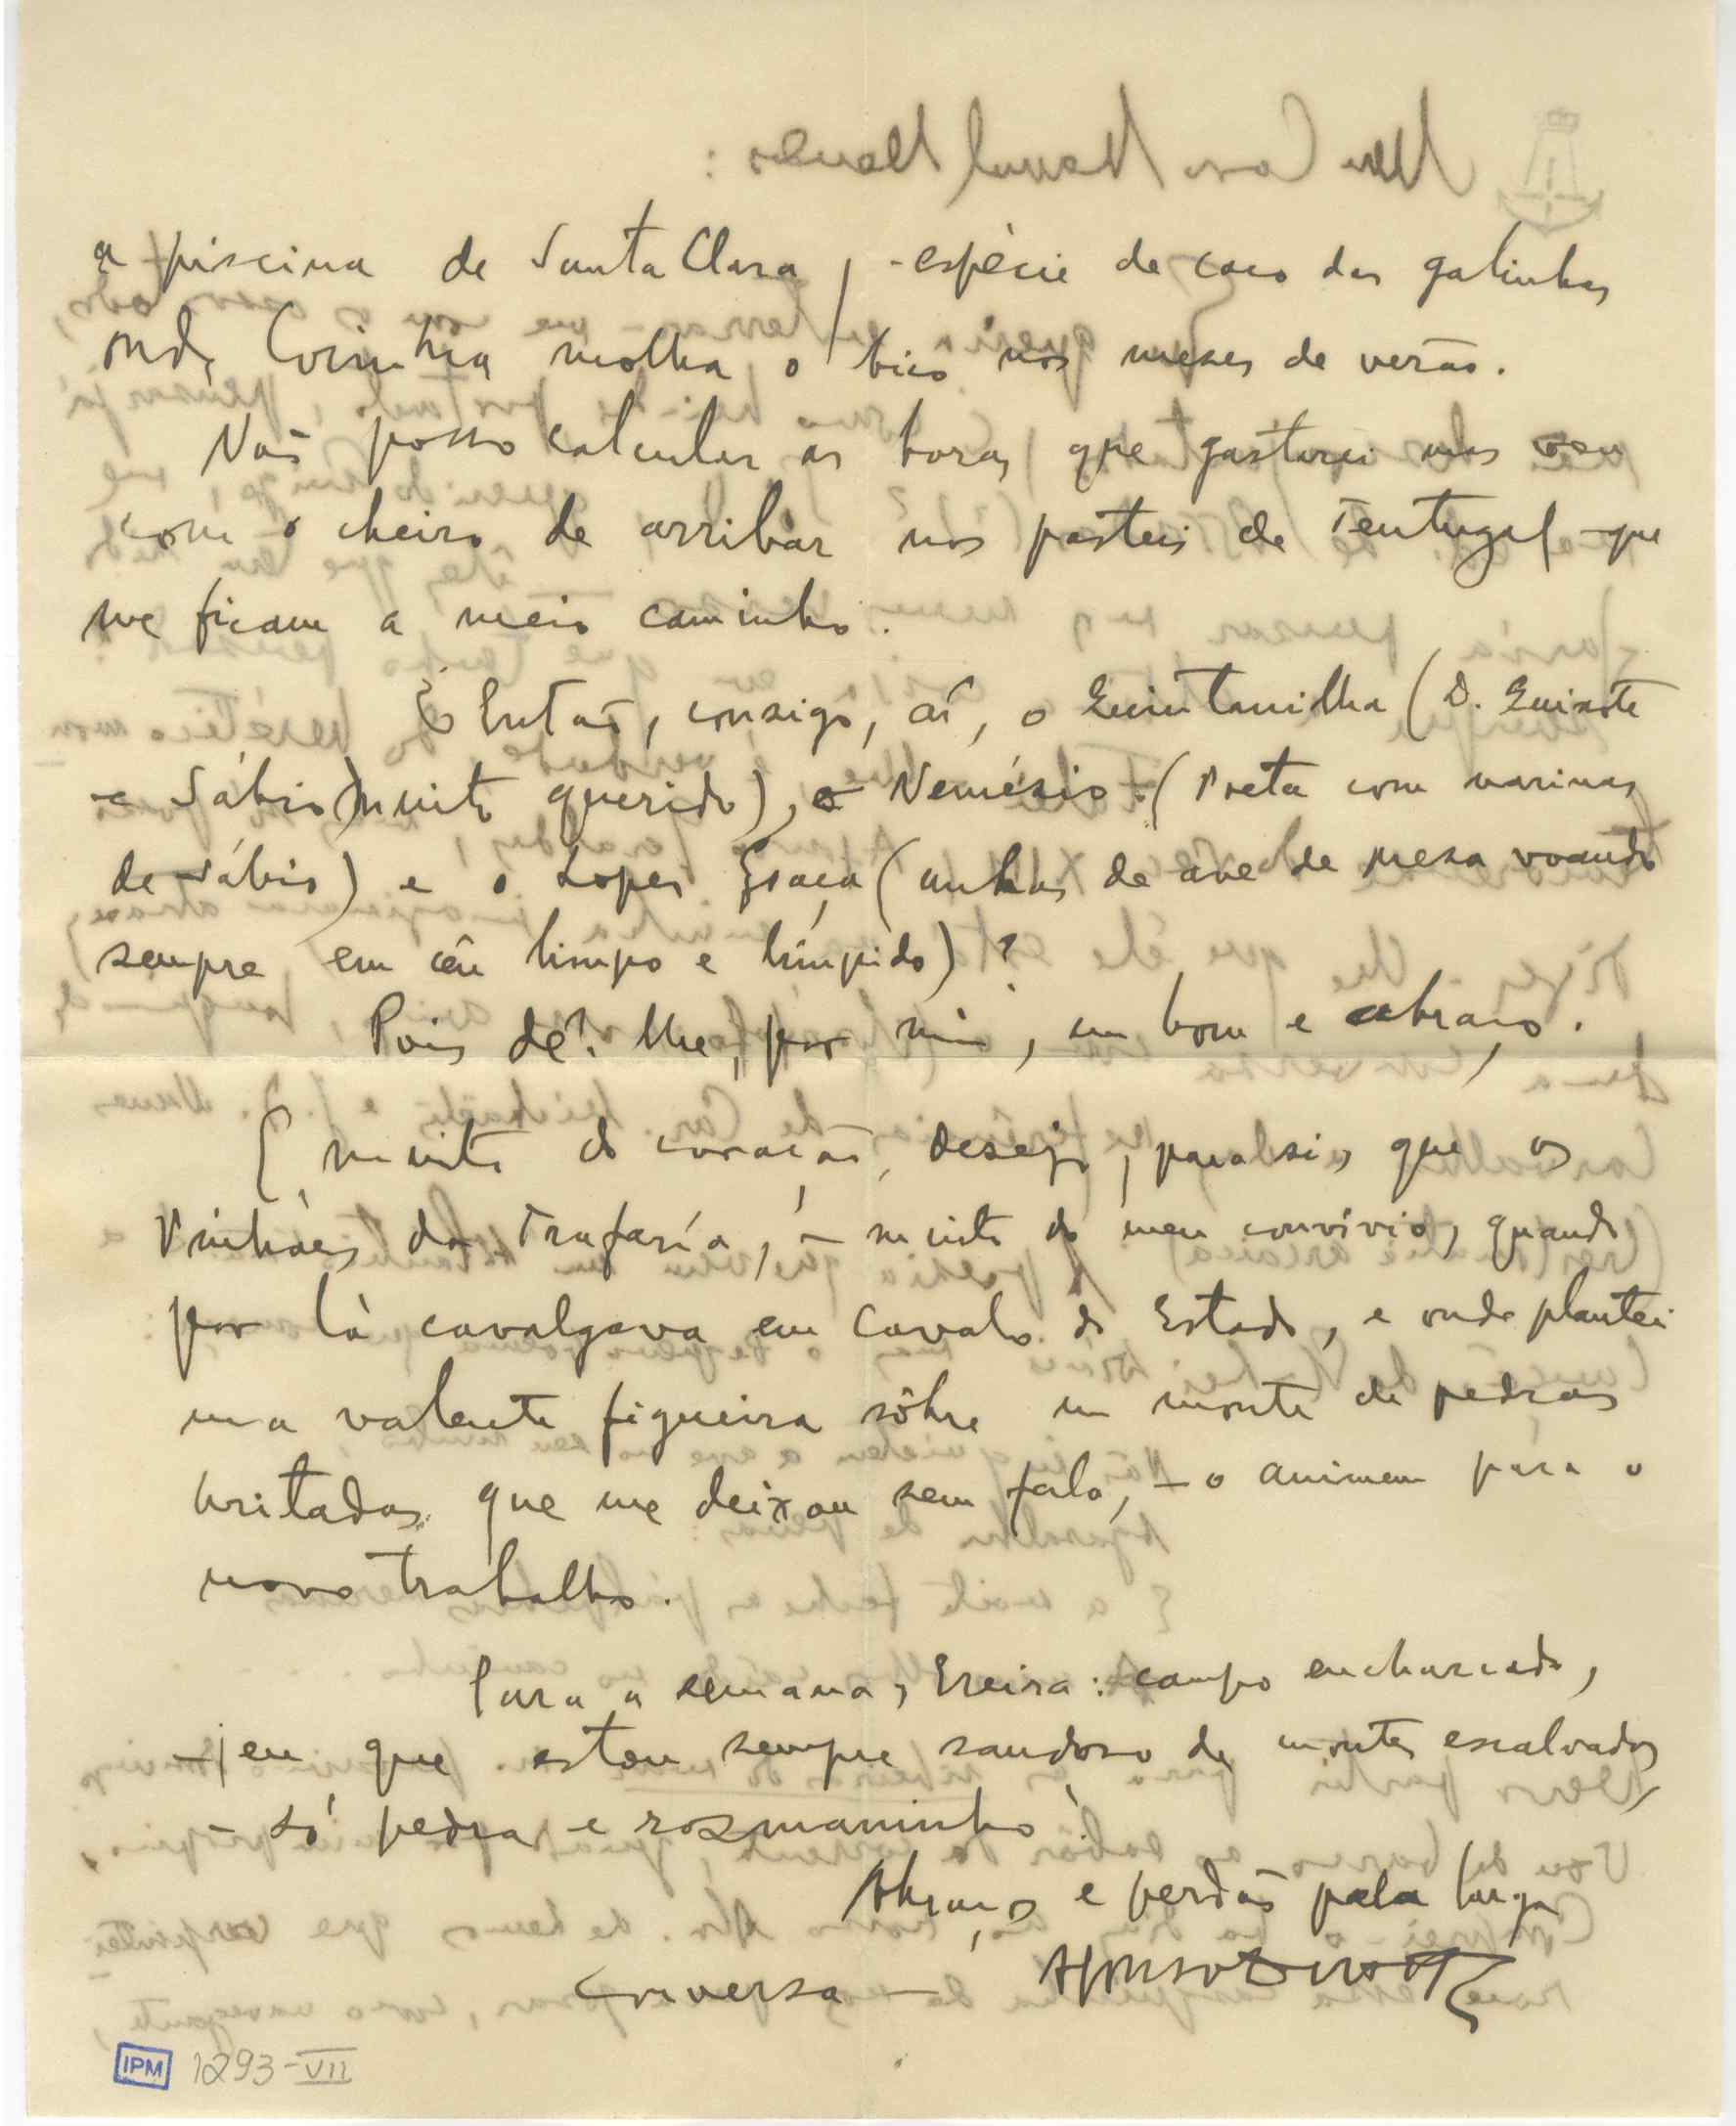 a piscina de Santa Clara, - espécie de caco das galinhas
onde Coimbra molha o bico nos meses de verão.
Não posso calcular as horas, que gastarei mas vou
com o cheiro de arribar nos pasteis de Tentugal - que
me ficam a meio caminho.
E então, consigo, aí, o Quintanilha (D. Quixote
e Sábio muito querido), o Nemésio (Poeta com
de sábio) e o Lopes Graça (unhas de ave de presa voando
sempre em céu limpo e límpido)?
Pois dê-lhe, por mim, um bom e abraço.
E muito do coração, desejo, para si, que os
Vinháes da Trafaria, - muito do meu convívio, quando
por lá cavalgava em cavalo do Estado, e onde plantei
uma valente figueira sôbre um monte de pedras
britadas que me deixou sem fala, - o animem para o
novo trabalho.
Para a semana, Ereira: campo encharcado,
- em que estou sempre saudoso de montes escalvados,
- só pedra e rosmaninho.
Abraços e perdão pela larga
conversa -
Afonso Duarte
IPM 1293-VII